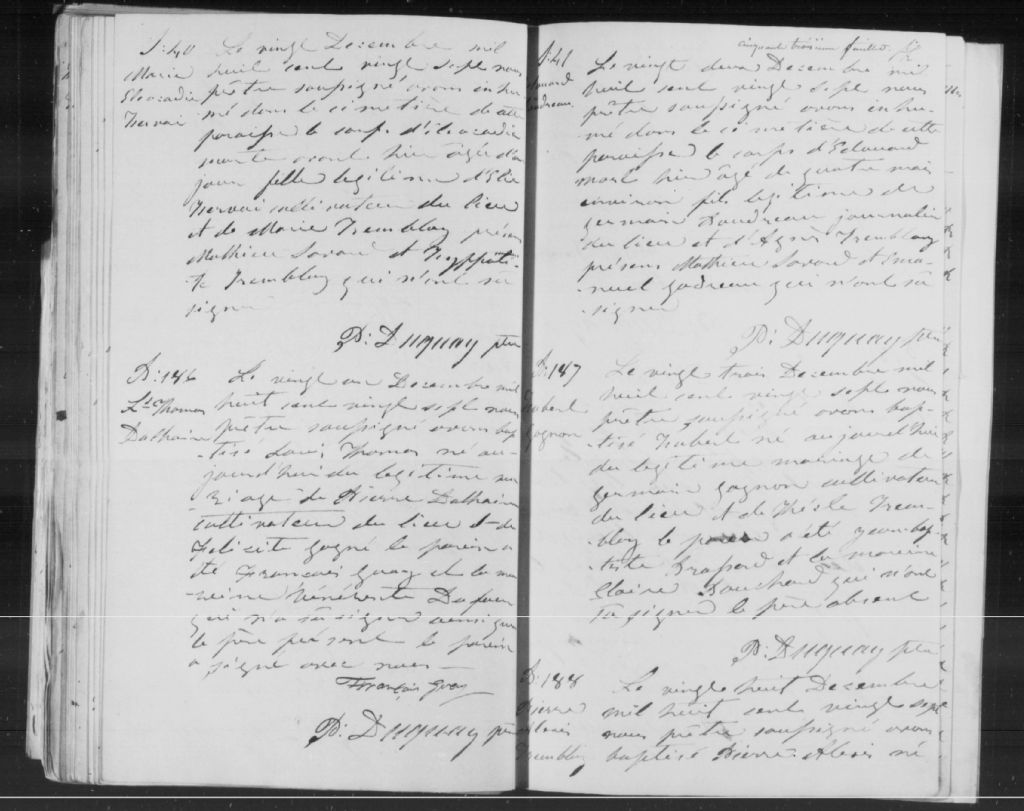 S: 40
Marie
Eleocadie
Hervai
Le vingt Decembre mil
huit cent vingt sept nous
prêtre soussigné avons inhu-
mé dans le cimetière de cette
paroisse le corps d'Eleocadie
morte avant hier âgée d'un
jour fille legitime d'Elie
Hervai cultivateur du lieu
et de Marie Tremblay présens
Mathieu Savard et Hyppoli-
te Tremblay qui n'ont sû
signer
P: Duguay ptre
B: 186
Ls Thomas
Dalhaire
Le vingt un Decembre mil
huit cent vingt sept nous
prêtre soussigné avons bap
-tisé Louis Thomas né au-
jourd'hui du legitime ma
-riage de Pierre Dalhaire
cultivateur du lieu et de
Felicité gagné le parein a
été François Guay et la ma
-reine Genevieve Dufour
qui n'a sû signer ainsi que
le père présent le parein
a signé avec nous
François Guay
P: Duguay ptre
cinquante troisieme feuillet
S: 41
Edouard
Boudreau
Le vingt deux Decembre mil
huit cent vingt sept nous
prêtre soussigné avons inhu-
mé dans le cimetière de cette
paroisse le corps d'Edouard
mort hier âgé de quatre mois
environ fils legitime de
germain Boudreau journalier
du lieu et d'Agnès Tremblay
présens Mathieu Savard et Ema-
-nuel godreau qui n'ont sû
signer
P: Duguay ptre
B: 187
Hubert
gagnon
Le vingt trois Decembre mil
huit cent vingt sept nous
prêtre soussigné avons bap-
-tisé Hubert né aujourd'hui
du legitime mariage de
germain gagnon cultivateur
du lieu et de Thècle Trem-
blay le parein a été jean bap
-tiste Brassard et la mareine
Claire Bouchard qui n'ont
sû signer le père absent
P: Duguay ptre
B: 188
Pierre
Alexis
Tremblay
Le vingt huit Decembre
mil huit cent vingt sept
nous prêtre soussigné avons
baptisé Pierre Alexis né